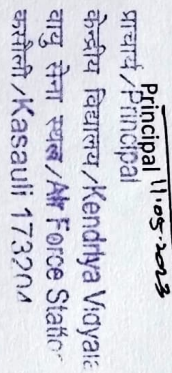 Principal 11.05.2023
प्राचार्य/Principal
केन्द्रीय विद्यालय/Kendriya Vidyala
वायु सेना स्थल/Air Force Statio
कसौली/Kasauli 173204